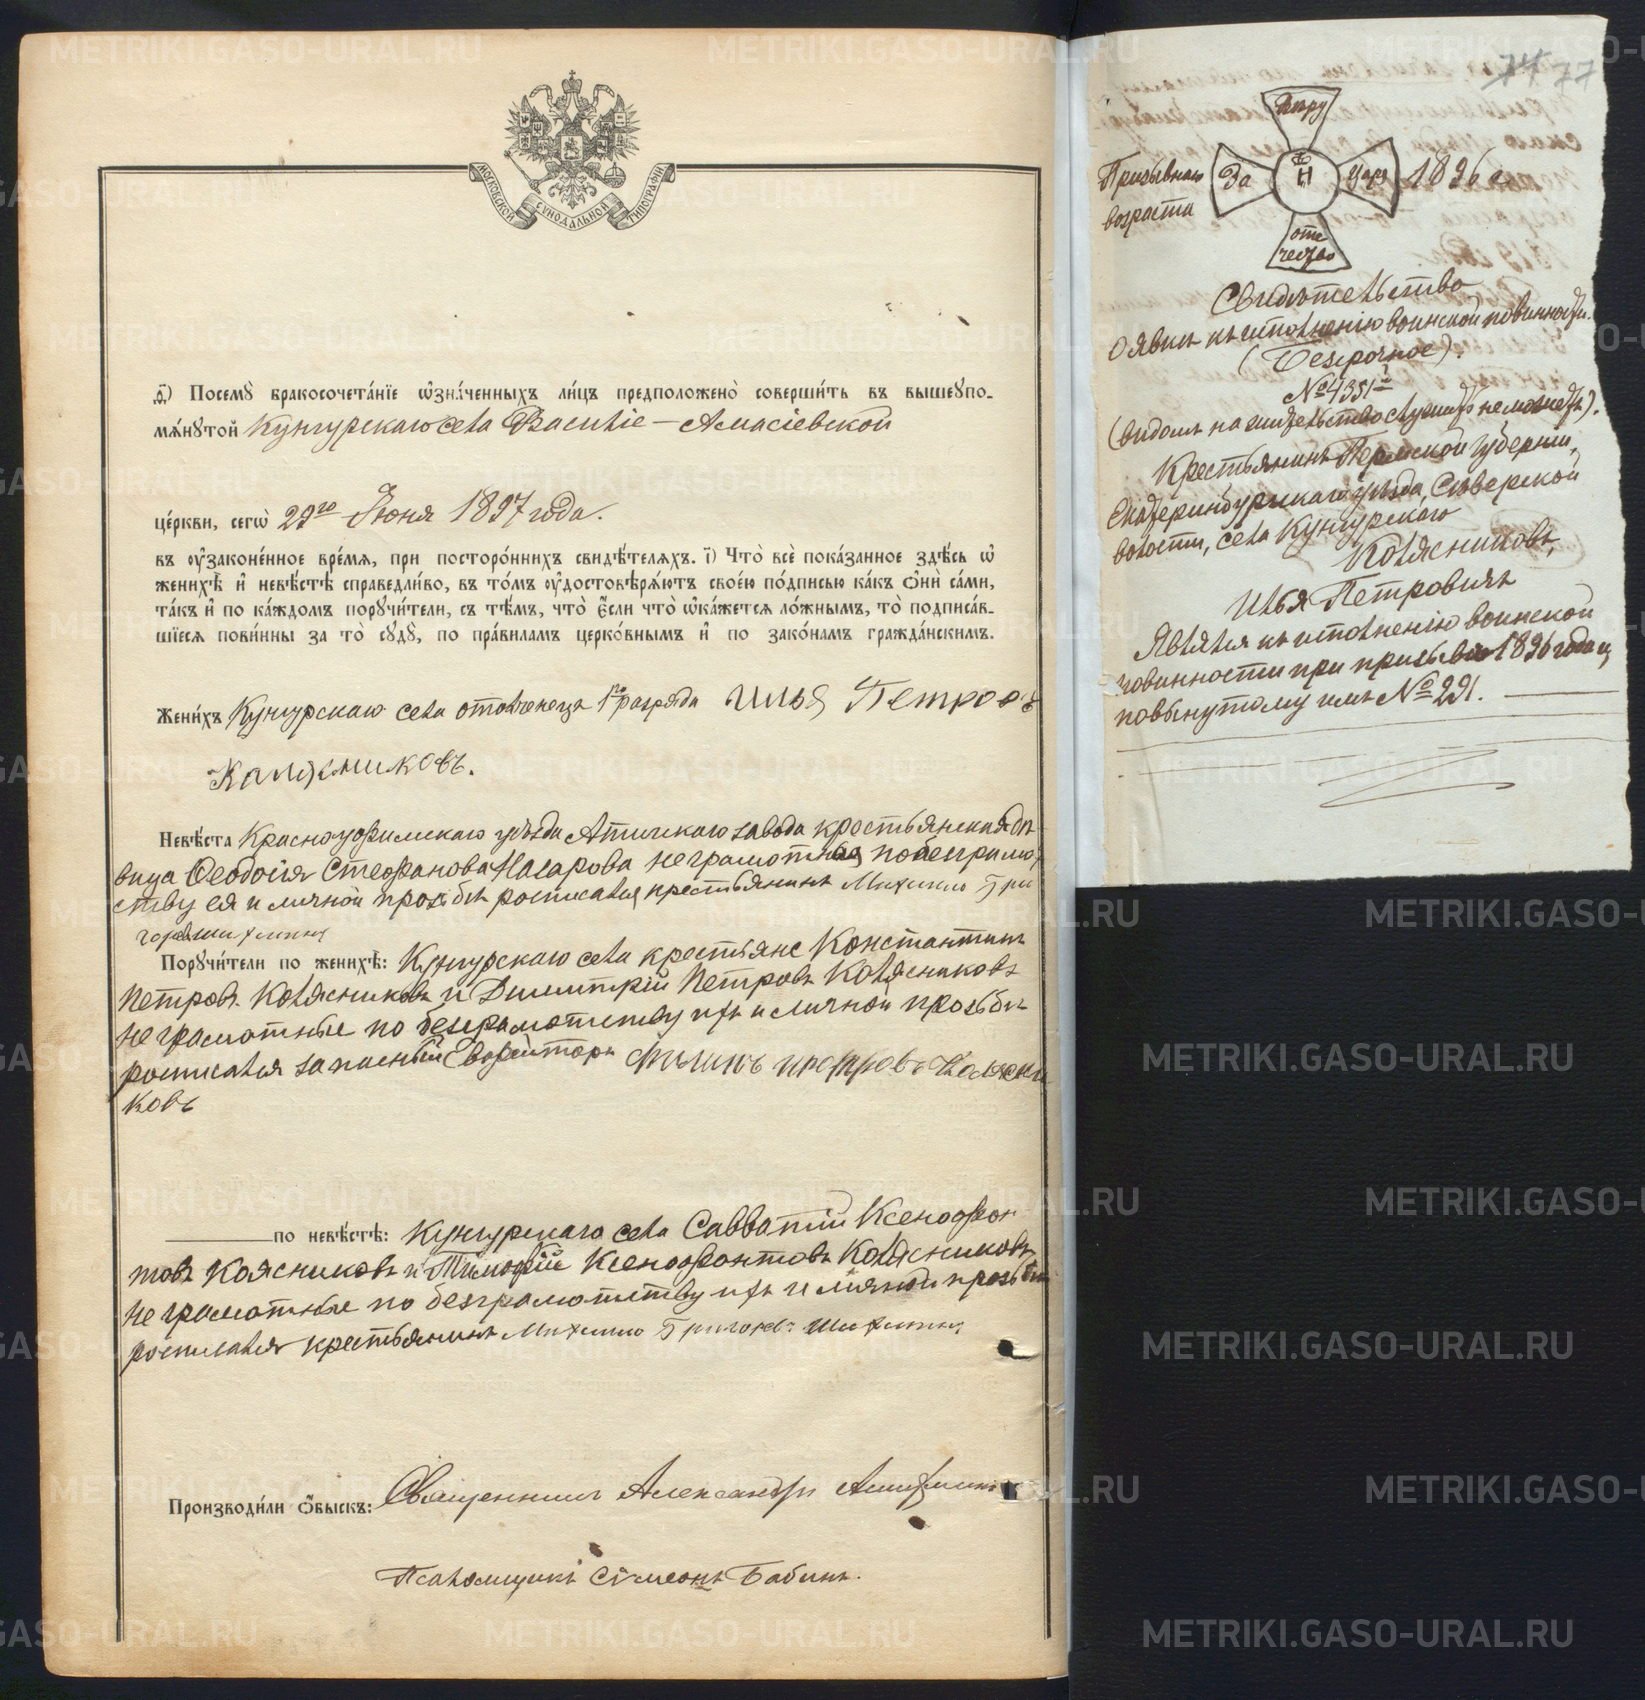 МОСКОВСКОЙ СѴНОДАЛЬНОЙ ТИПОГРАФІИ
д҃) Посемꙋ̀ бракосочета́нїе ѡ҆зна́ченныхъ ли́цъ предположено̀ соверши́ть въ вышеꙋпо-
мѧ́нꙋтой Кунгурскаго села Василіе-Амасіевской
це́ркви, сегѡ̀ 29го Іюня 1897 года.
въ ᲂу҆зако́ненное вре́мѧ, при посторо́ннихъ свидѣ́телѧхъ. і҃) Что̀ всѐ пока́занное здѣ́сь ѡ҆
женихѣ̀ и҆ невѣ́стѣ справедли́во, въ то́мъ ᲂу҆достовѣрѧ́ютъ свое́ю по́дписью ка́къ ѻ҆нѝ са́ми,
та́къ и҆ по ка́ждомъ порꙋчи́тели, съ тѣ́мъ, что̀ є҆́сли что̀ ѡ҆ка́жетсѧ ло́жнымъ, то̀ подписа́в-
шїесѧ пови́нны за то̀ сꙋдꙋ̀, по пра́виламъ церко́внымъ и҆ по зако́намъ гражда́нскимъ.
Жени́хъ Кунгурскаго села ополченецъ 1го разряда Илья Петровъ
Колясниковъ.
Невѣ́ста Красноуфимскаго уѣзда Атигскаго завода крестьянская дѣ-
вица Ѳеодосія Стефанова Назарова неграмотная, по безграмот
ству ея и личной прозьбѣ росписался крестьянинъ Михаило Гри
горьевъ
Порꙋчи́тели по женихѣ̀: Кунгурскаго села крестьяне Константинъ
Петровъ Колясниковъ и Димитрій Петровъ Колясниковъ
неграмотные по безграмотству ихъ и личной прозьбѣ
росписался запасный Ефрейторъ Петровъ Колясни
ковъ
по невѣ́стѣ: Кунгурскаго села Савватій Ксенофон
товъ Коясниковъ и Тимофій Ксенофонтовъ Колясниковъ
неграмотные по безграмотству ихъ и личной прозьбѣ
росписался крестьянинъ Михаило Григорьевъ
Производи́ли ѻ҆́быскъ: Священникъ Александръ
Псаломщикъ Сѵмеонъ Бабинъ.
74 77
Вѣру
Призывнаго За Н Царя 1896 г.
возраста
оте
чество
Свидѣтельство
О явкѣ къ исполненію воинской повинности.
(Безсрочное).
№ 4351й
(видомъ на жительство служить не можетъ).
Крестьянинъ Пермской губерніи,
Екатеринбургскаго уѣзда, Сѣверской
волости, села Кунгурскаго
Колясниковъ,
Илья Петровичъ
Являлся къ исполненію воинской
повинности при призывѣ 1896 года и,
по вынутому имъ № 291.
METRIKI.GASO-URAL.RU